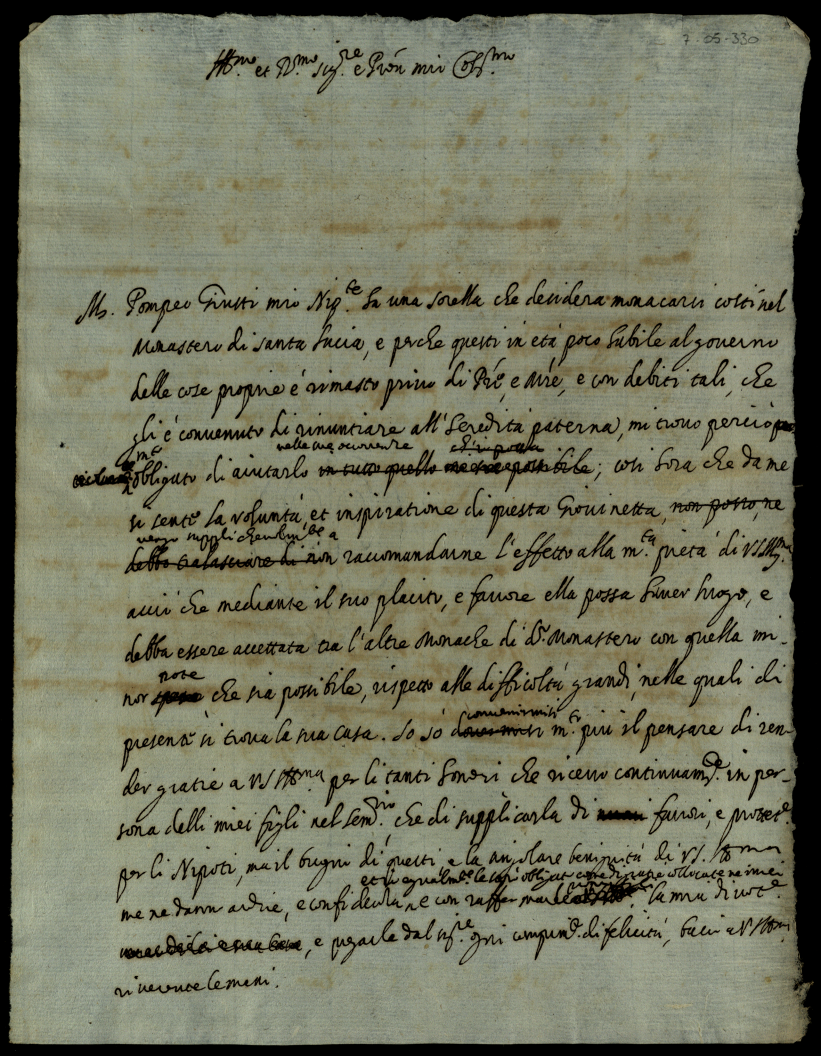 7-05-330
Ill.mo et R.mo Sig.re e Pron mio Coll.mo
M. Pompeo Giusti mio Nip.te ha una sorella che desidera monacarsi costì nel
Monastero di Santa Lucia, e perche questi in età poco habile al governo
delle cose proprie è rimasto privo di Pre, e Mre, e con debiti tali, che
gli è convenuto di rinuntiare all'heredità paterna, mi trovo perciò
nelle sue occorrenze
obligato di aiutarlo in tutto quello possibile; così hora che da me
si sente la voluntà, et inspiratione di questa Giovinetta, non posso, ne
vengo supplichevolm.te a
debbo tralasciare di non raccomandarne l'effetto alla m.ta pietà di VS Ill.ma
acciò che mediante il suo placito, e favore ella possa haver luogo, e
debba essere accettata tra l'altre Monache di d.o Monastero con quella mi-
dote
nor spesa che sia possibile, rispetto alle difficoltà grandi, nelle quali di
convenirmisi
presente si trova la sua casa. Io so m.to più il pensare di ren-
der gratie a VS Ill.ma per li tanti honori che ricevo continuam.te in per-
sona delli miei figli nel Sem.rio, che di supplicarla di favori, e protet.e
per li Nipoti, ma il bisogno di questi e la singolare benignità di VS. Ill.ma
me ne danno ardire, e confidenza, la mia divot.e
e pregarle dal Sig.re ogni compim.to di felicità, bacio a VS Ill.ma
riverente le mani.